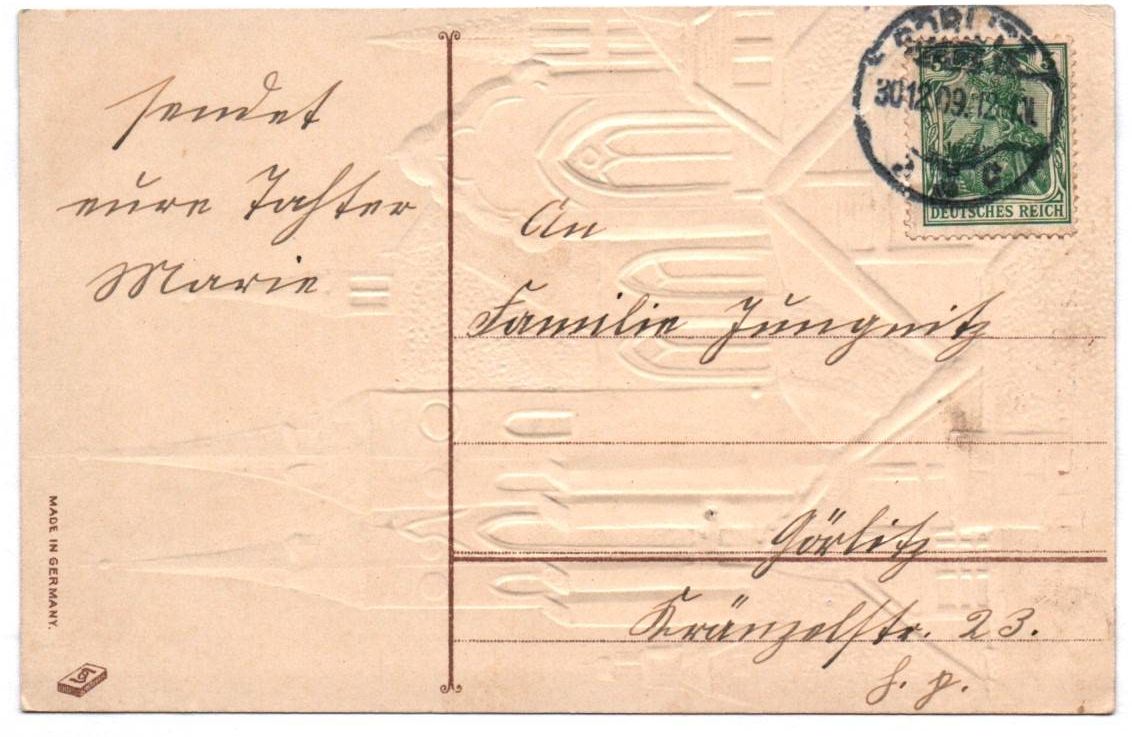 sendet
eure Tochter
Marie
An
Familie Jungnitz
Görlitz
Kränzelstr. 23.
h. p.
GÖRLITZ
30.12.09.12-1N.
DEUTSCHES REICH
5
MADE IN GERMANY.